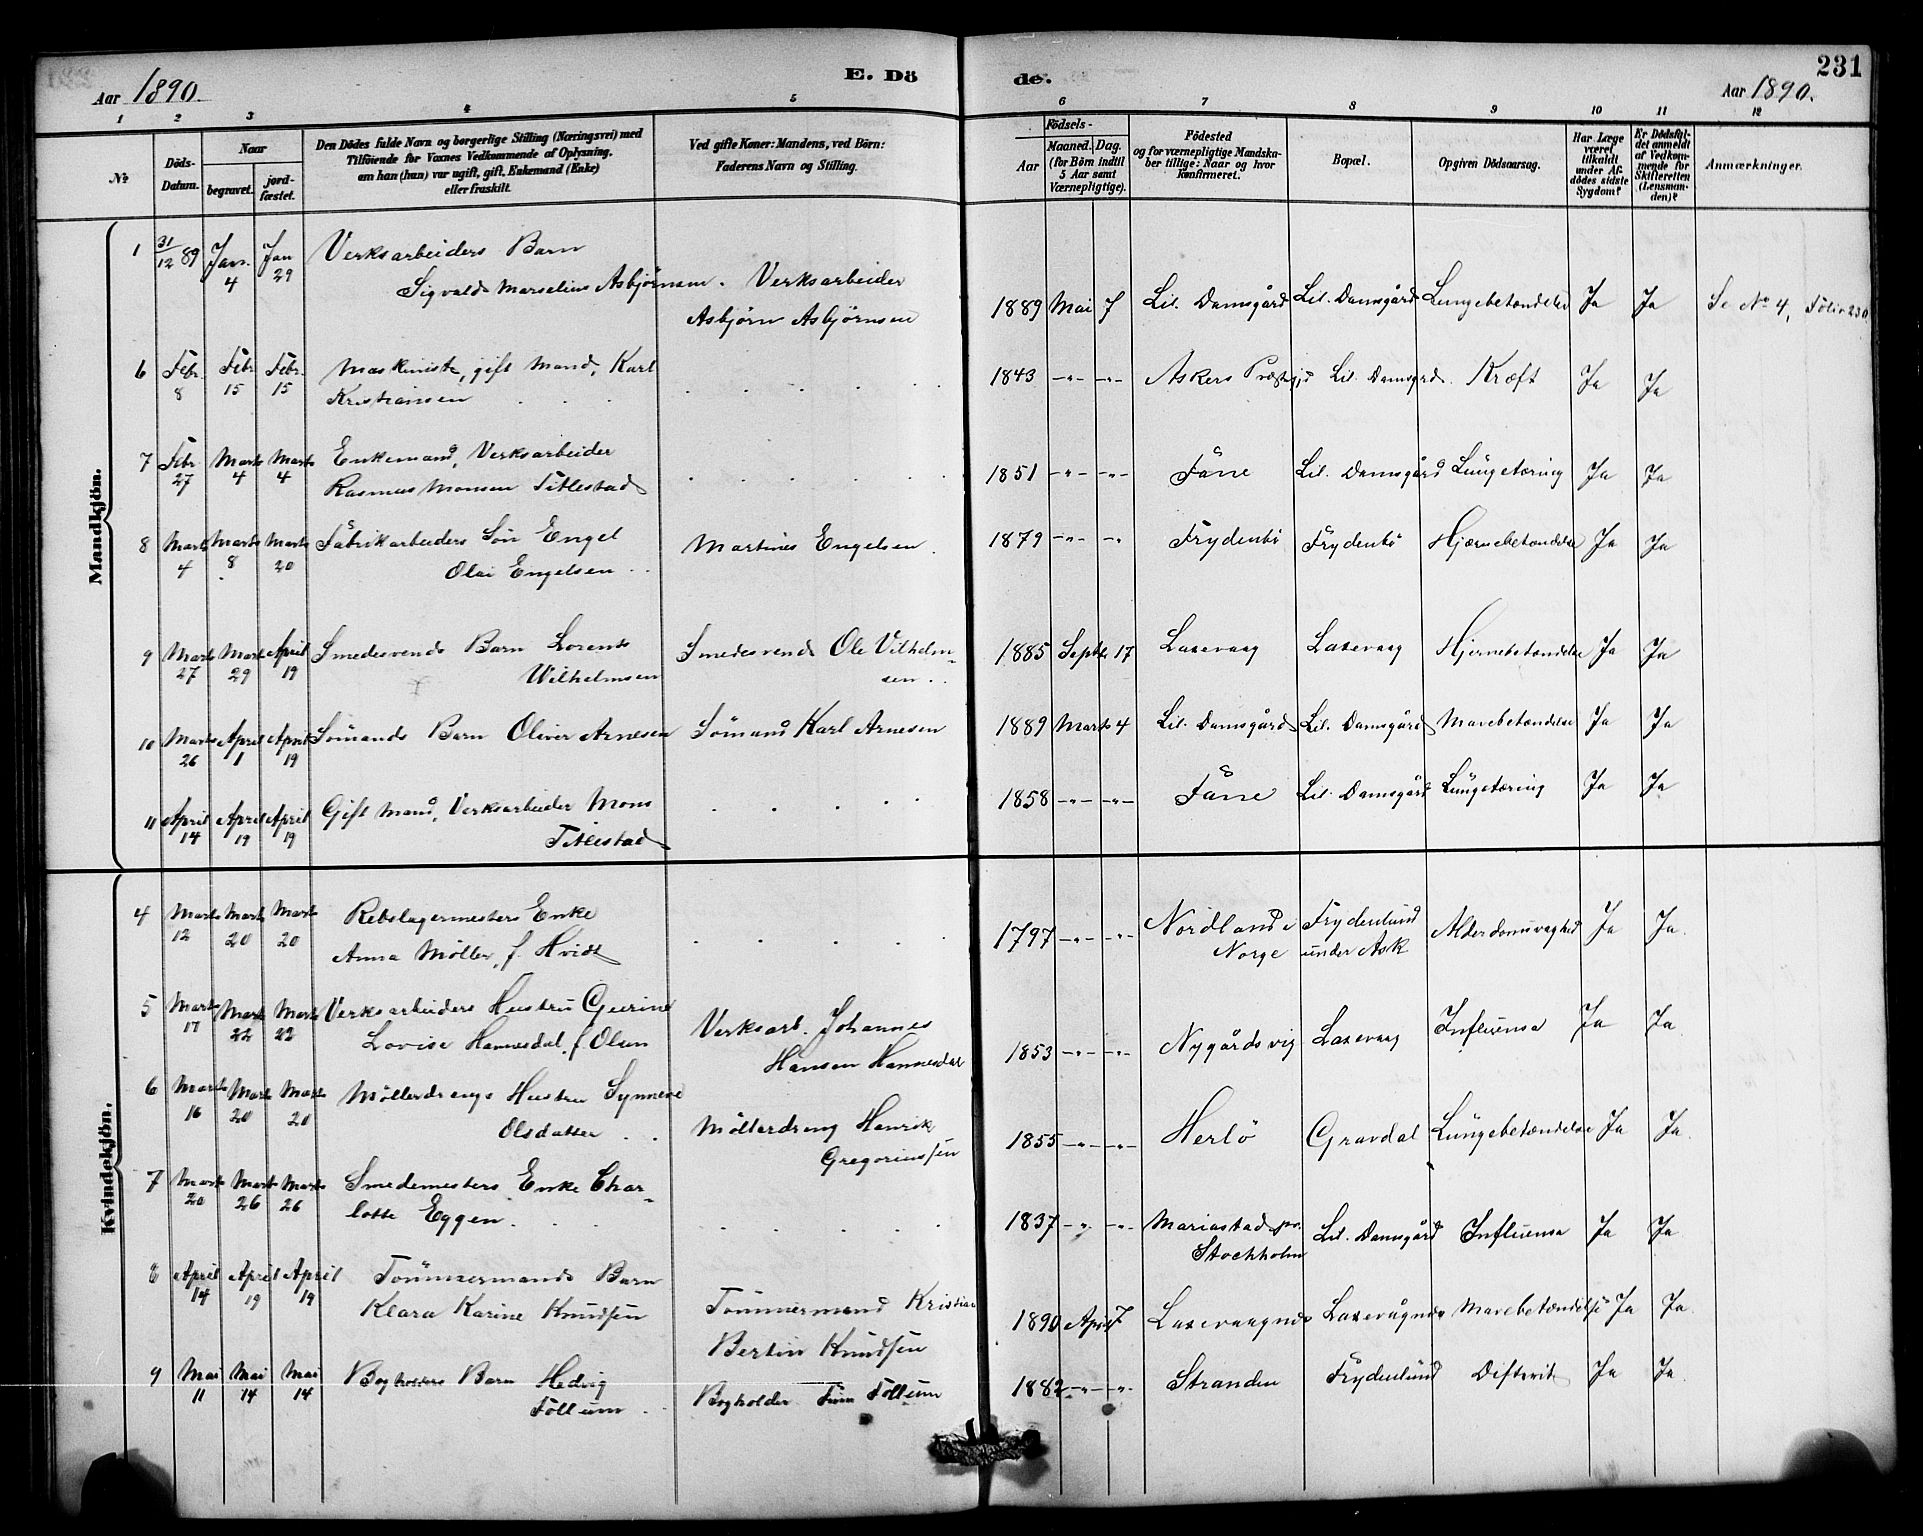 Aar 1890.
E. Dö
de.
231
Aar 1890.
1 2 3 4 5 6 7 8 9 10 11 12
№
Döds-
Datum.
Naar
begravet.
jord-
fæstet.
Den Dödes fulde Navn og borgerlige Stilling (Næringsvei) med
Tilföiende for Voxnes Vedkommende af Oplysning,
om han (hun) var ugift, gift, Enkemand (Enke)
eller fraskilt.
Ved gifte Koner: Mandens, ved Börn:
Faderens Navn og Stilling.
Födsels-
Aar
Maaned. Dag.
(for Börn indtil
5 Aar samt
Værnepligtige).
Födested
og for værnepligtige Mandska-
ber tillige: Naar og hvor
konfirmeret.
Bopæl.
Opgiven Dödsaarsag.
Har Læge
været
tilkaldt
under Af-
dödes sidste
Sygdom?
Er Dödsfal-
det anmeldt
af Vedkom-
mende for
Skifteretten
(Lensman-
den)?
Anmærkninger.
Mandkjön.
1 31/12 89 Jan. 4 Jan 29 Verksarbeiders Barn
Sigvald Marselius Asbjørnsen. Verksarbeider
Asbjørn Asbjørnsen
1889 Mai 7 Lil. Damsgård Lil. Damsgård Lungebetændelse Ja Ja Se No 4, Folio 230
6 Febr. 8 Febr 15 Febr. 15 Maskinist, gift Mand, Karl
Kristiansen
1843 -"- -"- Askers Præstgj. Lil. Damsgrd. Kræft Ja Ja
7 Febr 27 Marts 4 Marts 4 Enkemand, Verksarbeider
Rasmus Monsen Titlestad
1851 -"- -"- Fane Lil. Damsgård Lungetæring Ja Ja
8 Marts 4 Marts 8 Marts 20 Fabrikarbeiders Søn Engel
Olai Engelsen
Martines Engelsen
1879 -"- -"- Frydenbø Frydenbø Hjærnebetændelse Ja Ja
9 Marts 27 Marts 29 April 19 Smedesvends Barn Lorents
Wilhelmsen
Smedesvend Ole Vilhelm-
sen
1885 Septbr 17 Laxevaag Laxevaag Hjernebetændelse Ja Ja
10 Marts 26 April 1 April 19 Sømands Barn Oliver Arnesen Sømand Karl Arnesen
1889 Marts 4 Lil. Damsgård Lil. Damsgård Mavebetændelse Ja Ja
11 April 14 April 19 April 19 Gift Mand, Verksarbeider Mons
Titlestad
1858 -"- -"- Fane Lil. Damsgård Lungetæring Ja Ja
Kvindekjön.
4 Marts 12 Marts 20 Marts 20 Rebslagermesters Enke
Anna Møller, f. Hvidt
1797 -"- -"- Nordland i Frydenlund
Norge under Ask
Alderdomsvaghed Ja Ja.
5 Marts 17 Marts 22 Marts 22 Verksarbeiders Hustru Geerine
Lovise Hannesdal, f. Olsen
Verksarb. Johannes
Hansen Hannesdal
1853 -"- -"- Nygårdsvig Laxevaag Influensa Ja Ja.
6 Marts 16 Marts 20 Marts 20 Møllerdrengs Hustru Synneve
Olsdatter
Møllerdreng Henrik
Gregoriussen
1855 -"- -"- Herlø Gravdal Lungebetændelse Ja Ja.
7 Marts 20 Marts 26 Marts 26 Smedemesters Enke Char-
lotte Eggen.
1837 -"- -"- Mariastad pr.
Stockholm
Lil. Damsgård Influensa Ja Ja
8 April 14 April 19 April 19 Tømmermands Barn
Klara Karine Knudsen
Tømmermand Kristian
Bertin Knudsen
1890 April 7 Laxevaagnes Laxevågnes Mavebetændelse Ja Ja.
9 Mai 11 Mai 14 Mai 14 Bogholders Barn Hedvig
Follum
Bogholder Follum
1882 -"- -"- Stranden Frydenlund Difterit Ja Ja.